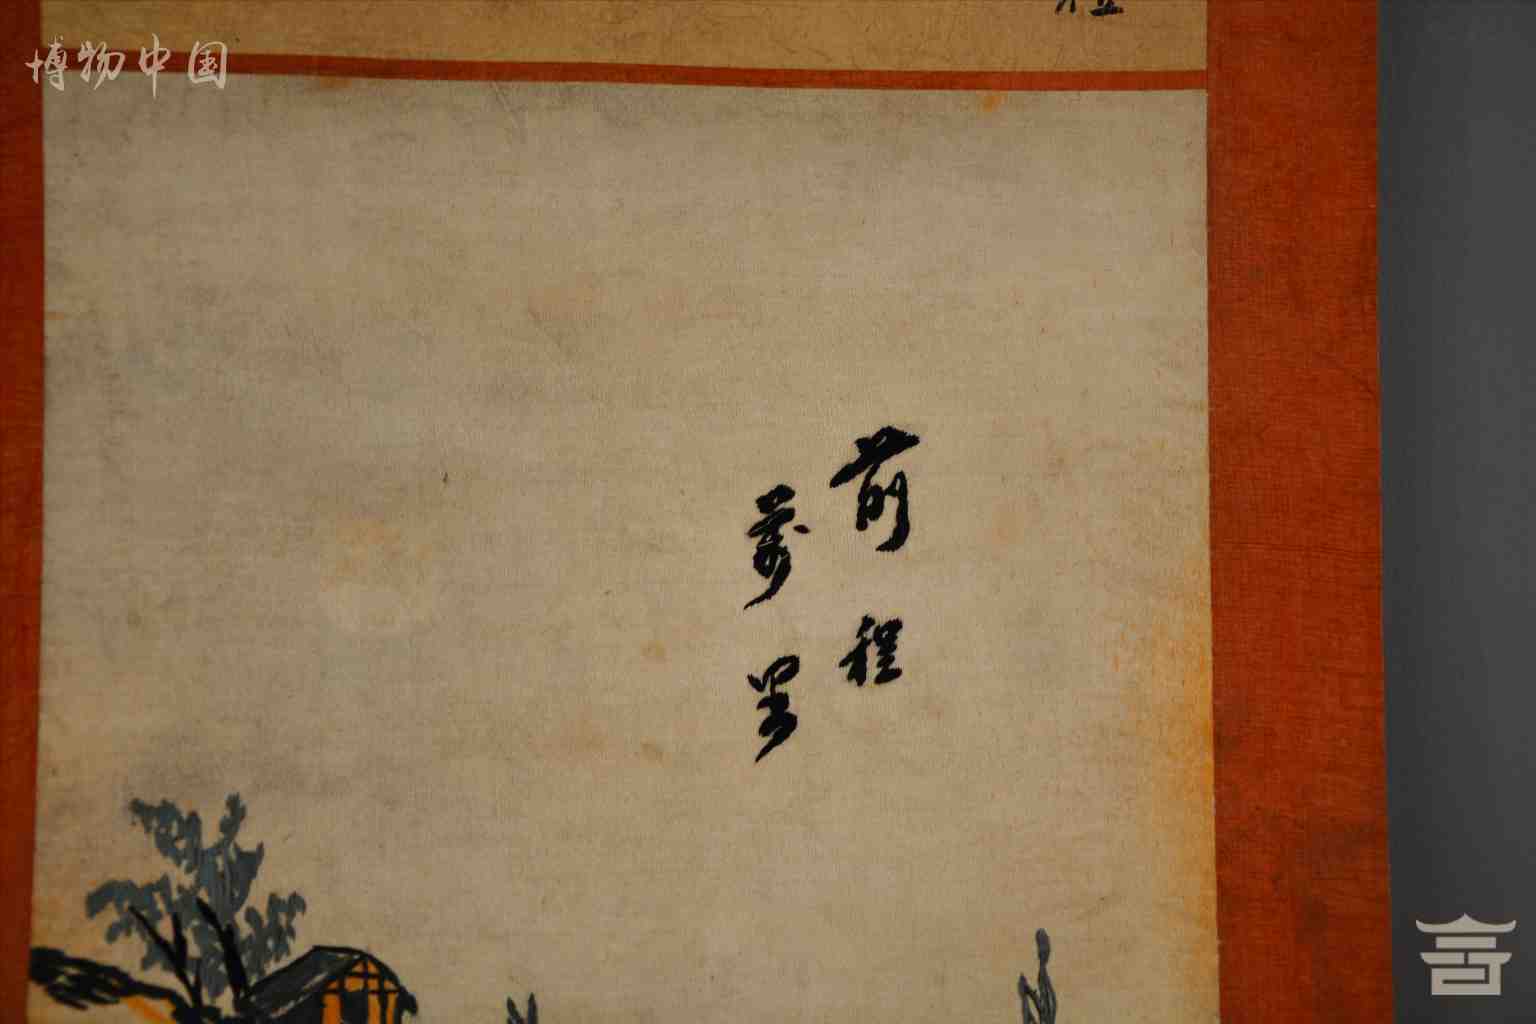 博物中国
前程
萬里